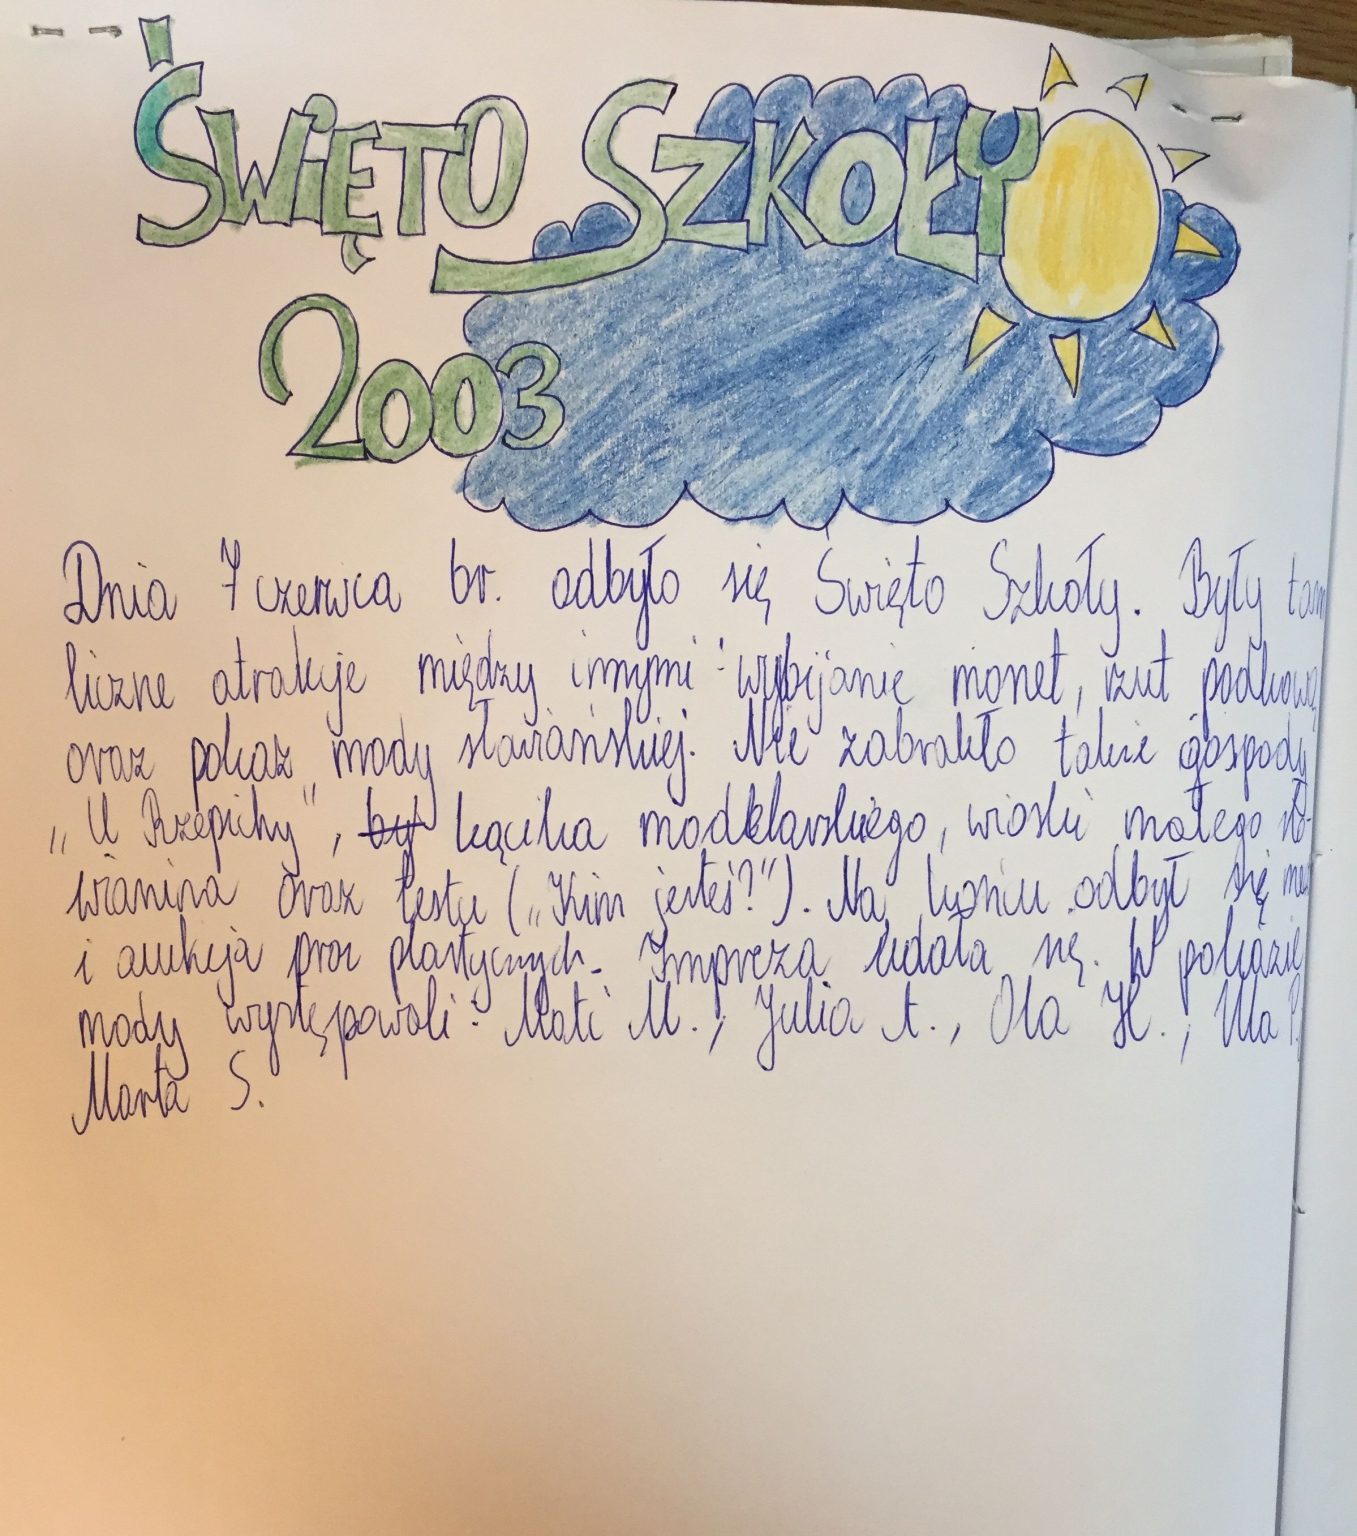 ŚWIĘTO SZKOŁY
2003
Dnia 7 czerwca br. odbyło się Święto Szkoły. Były tam
liczne atrakcje między innymi: wybijanie monet, rzut podkową
oraz pokaz mody słowiańskiej. Nie zabrakło także gospody
„U Rzepichy", by kącika modelarskiego, wioski małego sło-
wianina oraz testu („Kim jesteś?"). Na końcu odbył się
i aukcja prac plastycznych. Impreza udała się. W pokazie
mody występowali: Mati M., Julia A., Ola H., Ula P.,
Marta S.